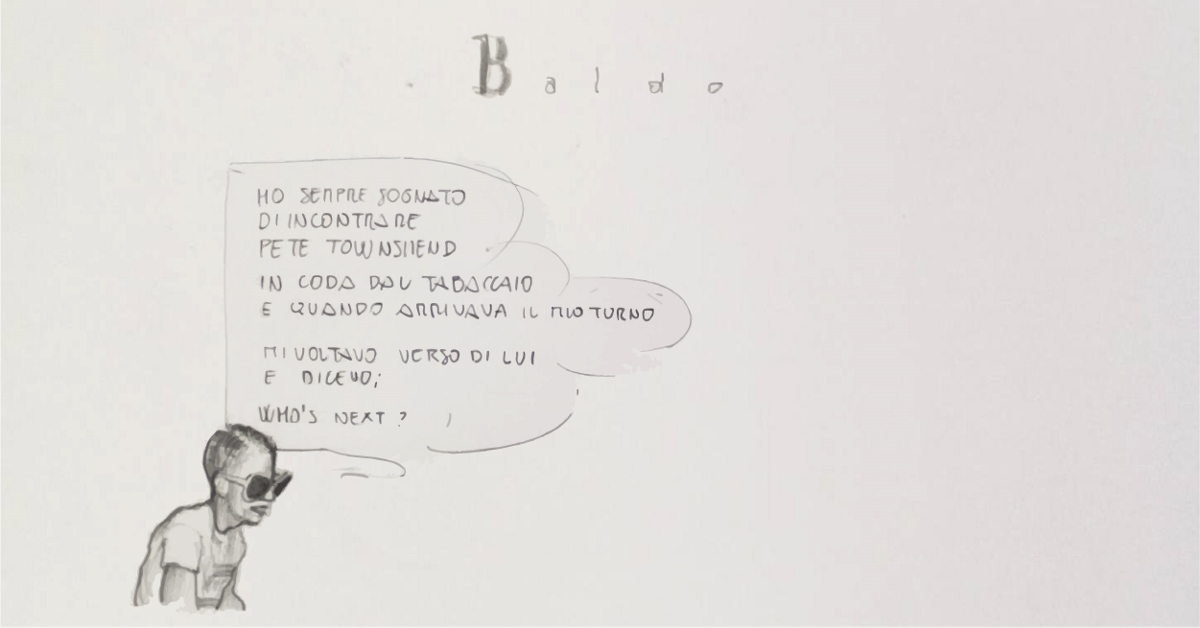 Baldo
HO SEMPRE SOGNATO
DI INCONTRARE
PETE TOWNSHEND
IN CODA DAL TABACCAIO
E QUANDO ARRIVAVA IL MIO TURNO
MI VOLTAVO VERSO DI LUI
E DICEVO;
WHO'S NEXT?